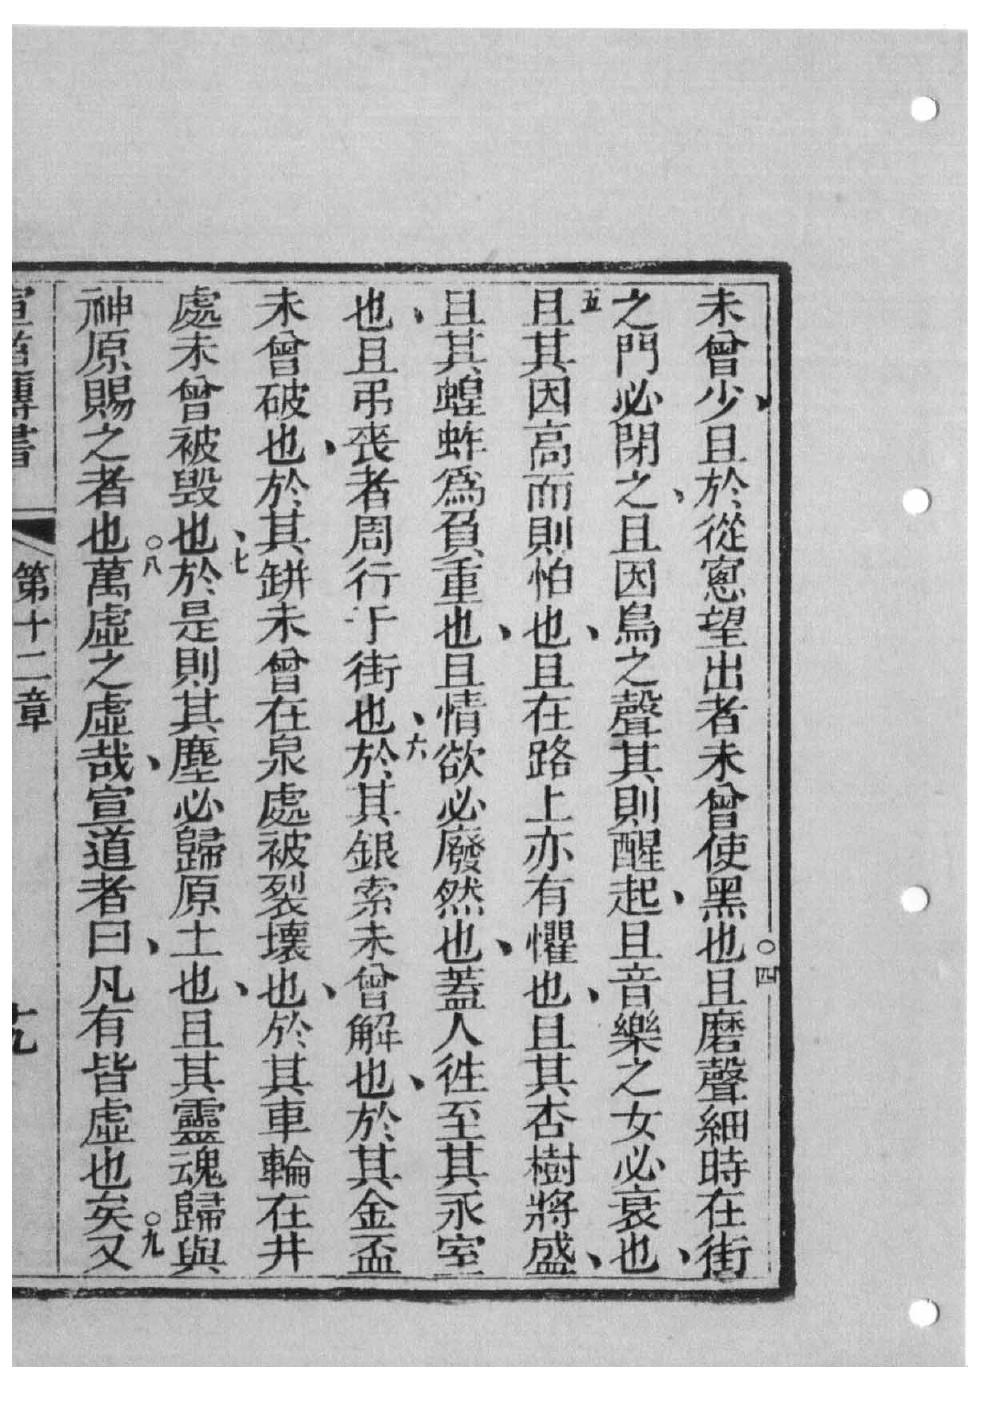 未曾少、且於從窓望出者未曾使黑也○四且磨聲細時在街
之門必閉之、且因鳥之聲其則醒起、且音樂之女必衰也、
五且其因高而則怕也、且在路上亦有懼也、且其杏樹將盛、
且其蝗蚱爲負重也、且情欲必廢然也、蓋人徃至其永室
也、且弔喪者周行于街也、六於其銀索未曾解也、於其金盃
未曾破也、於其缾未曾在泉處被裂壞也、於其車輪在井
處未曾被毀也、七於是則其塵必歸原土也、且其靈魂歸與
神原賜之者也○八萬虛之虛哉、宣道者曰、凡有皆虛也矣○九又
宣道傳書 第十二章